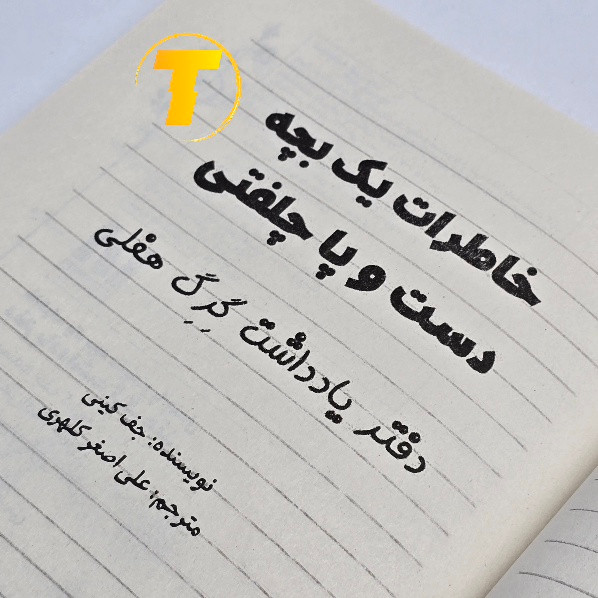 T
خاطرات یک بچه
دست و پا چلفتی
دفتر یادداشت گرِگِ هفلی
نویسنده: جف کینی
مترجم: علی اصغر کلهری